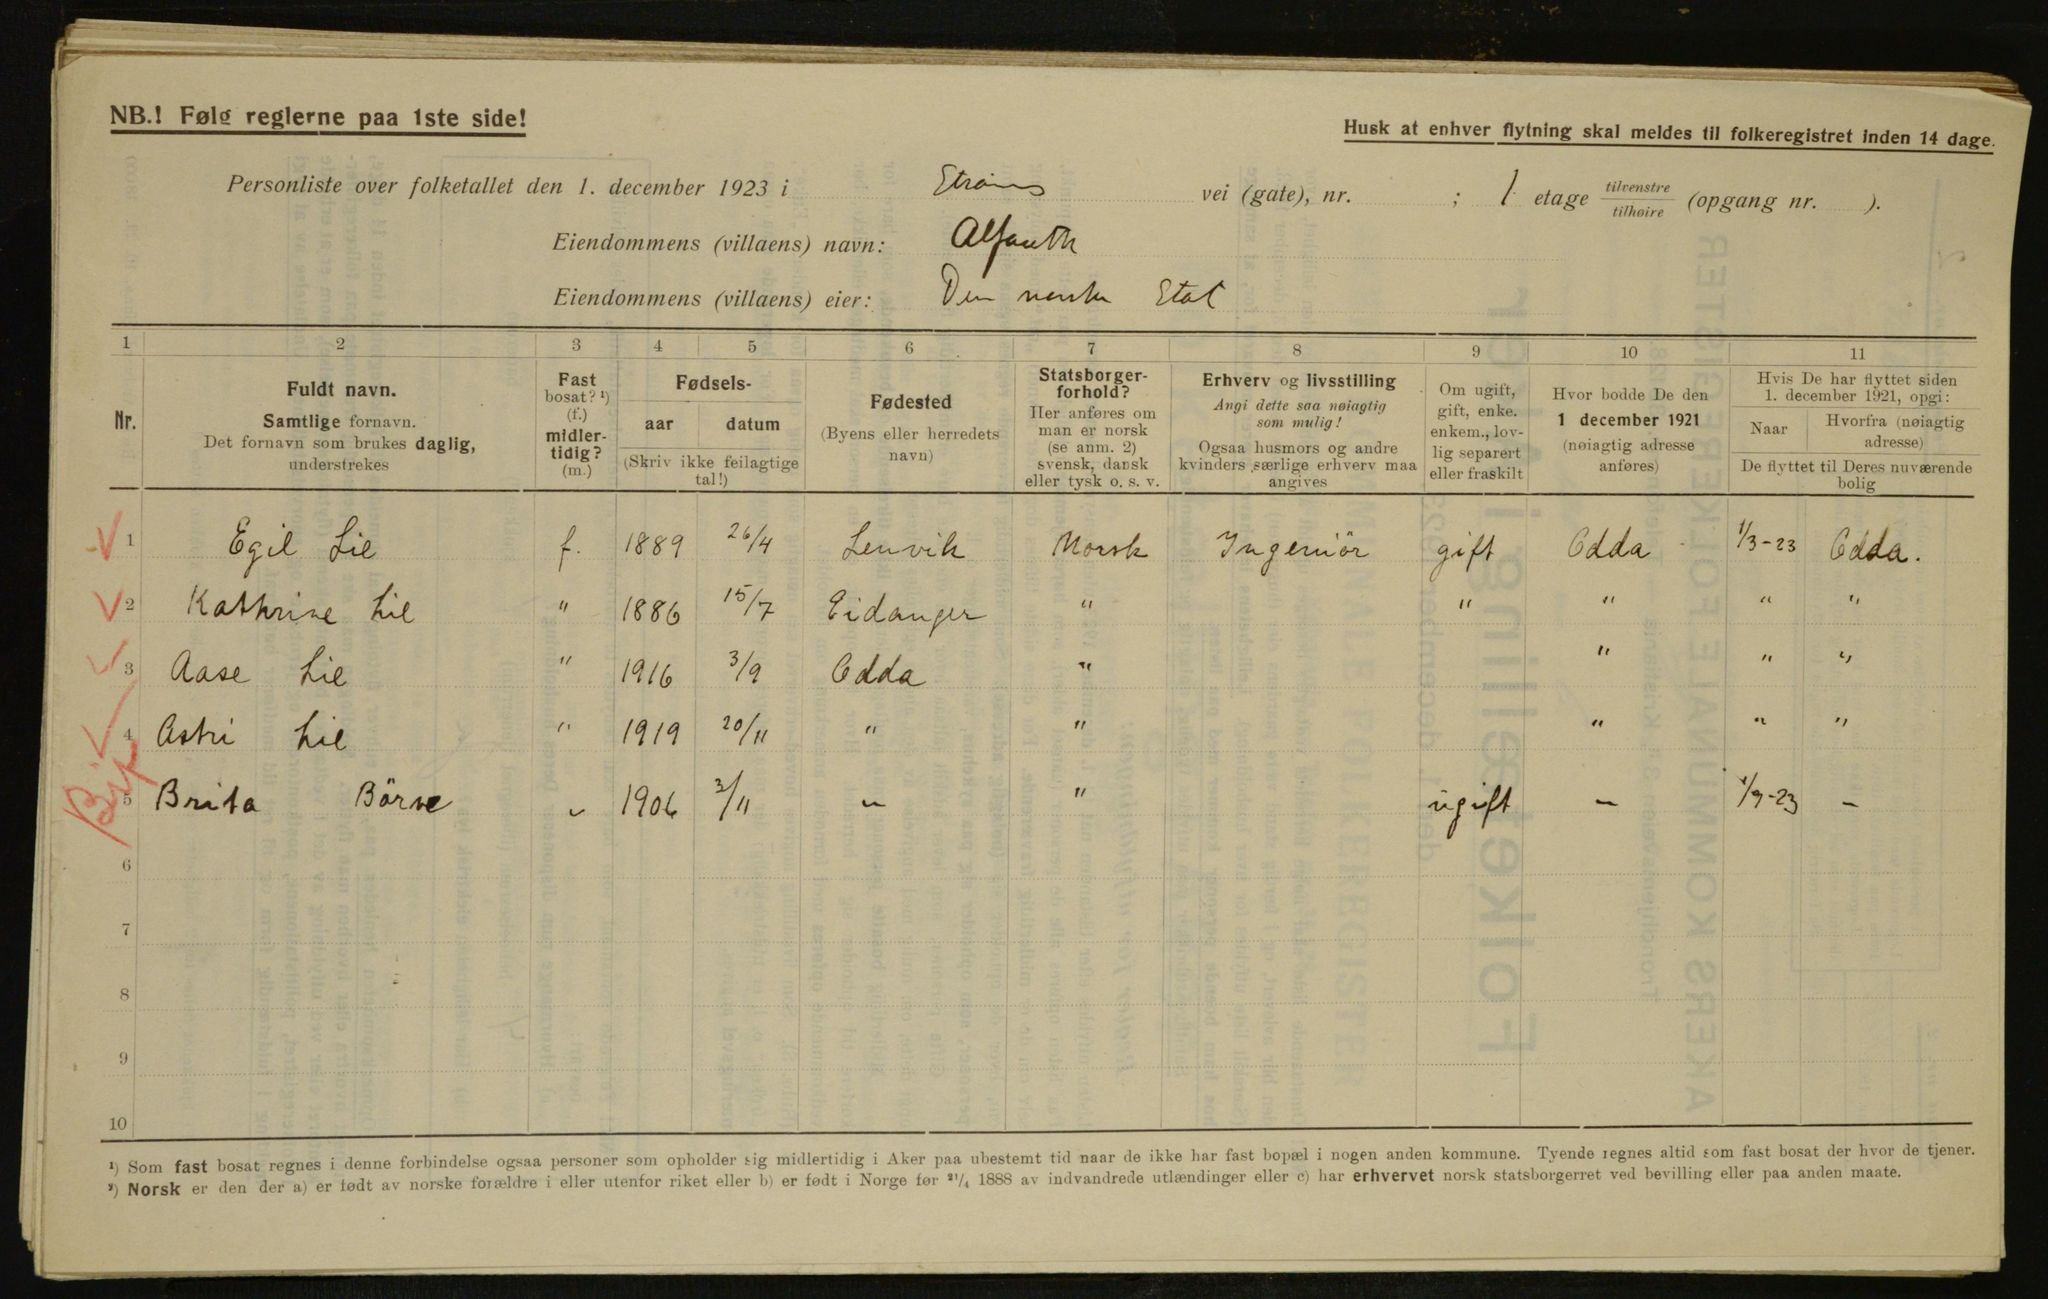 NB.! Følg reglerne paa 1ste side!
Husk at enhver flytning skal meldes til folkeregistret inden 14 dage.
Personliste over folketallet den 1. december 1923 i Strøms vei (gate), nr. ; 1 etage tilvenstre tilhøire (opgang nr. ).
Eiendommens (villaens) navn:
Eiendommens (villaens) eier: Den norske Stat
1 2 3 4 5 6 7 8 9 10 11
Nr.
Fuldt navn.
Samtlige fornavn.
Det fornavn som brukes daglig,
understrekes
Fast
bosat? ¹)
(f.)
midler-
tidig?
(m.)
Fødsels-
aar datum
(Skriv ikke feilagtige
tal!)
Fødested
(Byens eller herredets
navn)
Statsborger-
forhold?
Her anføres om
man er norsk
(se anm. 2)
svensk, dansk
eller tysk o. s. v.
Erhverv og livsstilling
Angi dette saa nøiagtig
som mulig!
Ogsaa husmors og andre
kvinders særlige erhverv maa
angives
Om ugift,
gift, enke.
enkem., lov-
lig separert
eller fraskilt
Hvor bodde De den
1 december 1921
(nøiagtig adresse
anføres)
Hvis De har flyttet siden
1. december 1921, opgi:
Naar
Hvorfra (nøiagtig
adresse)
De flyttet til Deres nuværende
bolig
1 Egil Lie f. 1889 26/4 Lenvik Norsk Ingeniör gift Odda 1/3-23 Odda.
2 Kathrine Lie " 1886 15/7 Eidanger " " " " "
3 Aase Lie " 1916 3/9 Odda " " " "
4 Astri Lie " 1919 20/11 " " " " "
5 Brita Börve " 1906 3/11 " " ugift – 1/9-23 –
6
7
8
9
10
¹) Som fast bosat regnes i denne forbindelse ogsaa personer som opholder sig midlertidig i Aker paa ubestemt tid naar de ikke har fast bopæl i nogen anden kommune. Tyende regnes altid som fast bosat der hvor de tjener.
²) Norsk er den der a) er født av norske forældre i eller utenfor riket eller b) er født i Norge før 21/4 1888 av indvandrede utlændinger eller c) har erhvervet norsk statsborgerret ved bevilling eller paa anden maate.